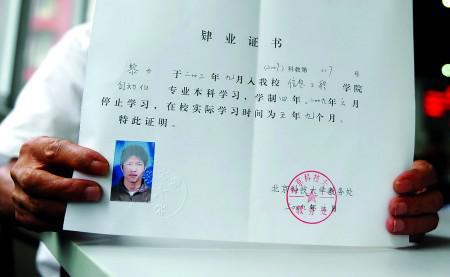 肄业证书
(2009)科教第 07 号
黎力 于二〇〇三年九月入我校信息工程学院
自动化 专业本科学习,学制四年。二〇〇九年六月
停止学习,在校实际学习时间为五年九个月。
特此证明。
北京科技大学教务处
二〇〇九年 月